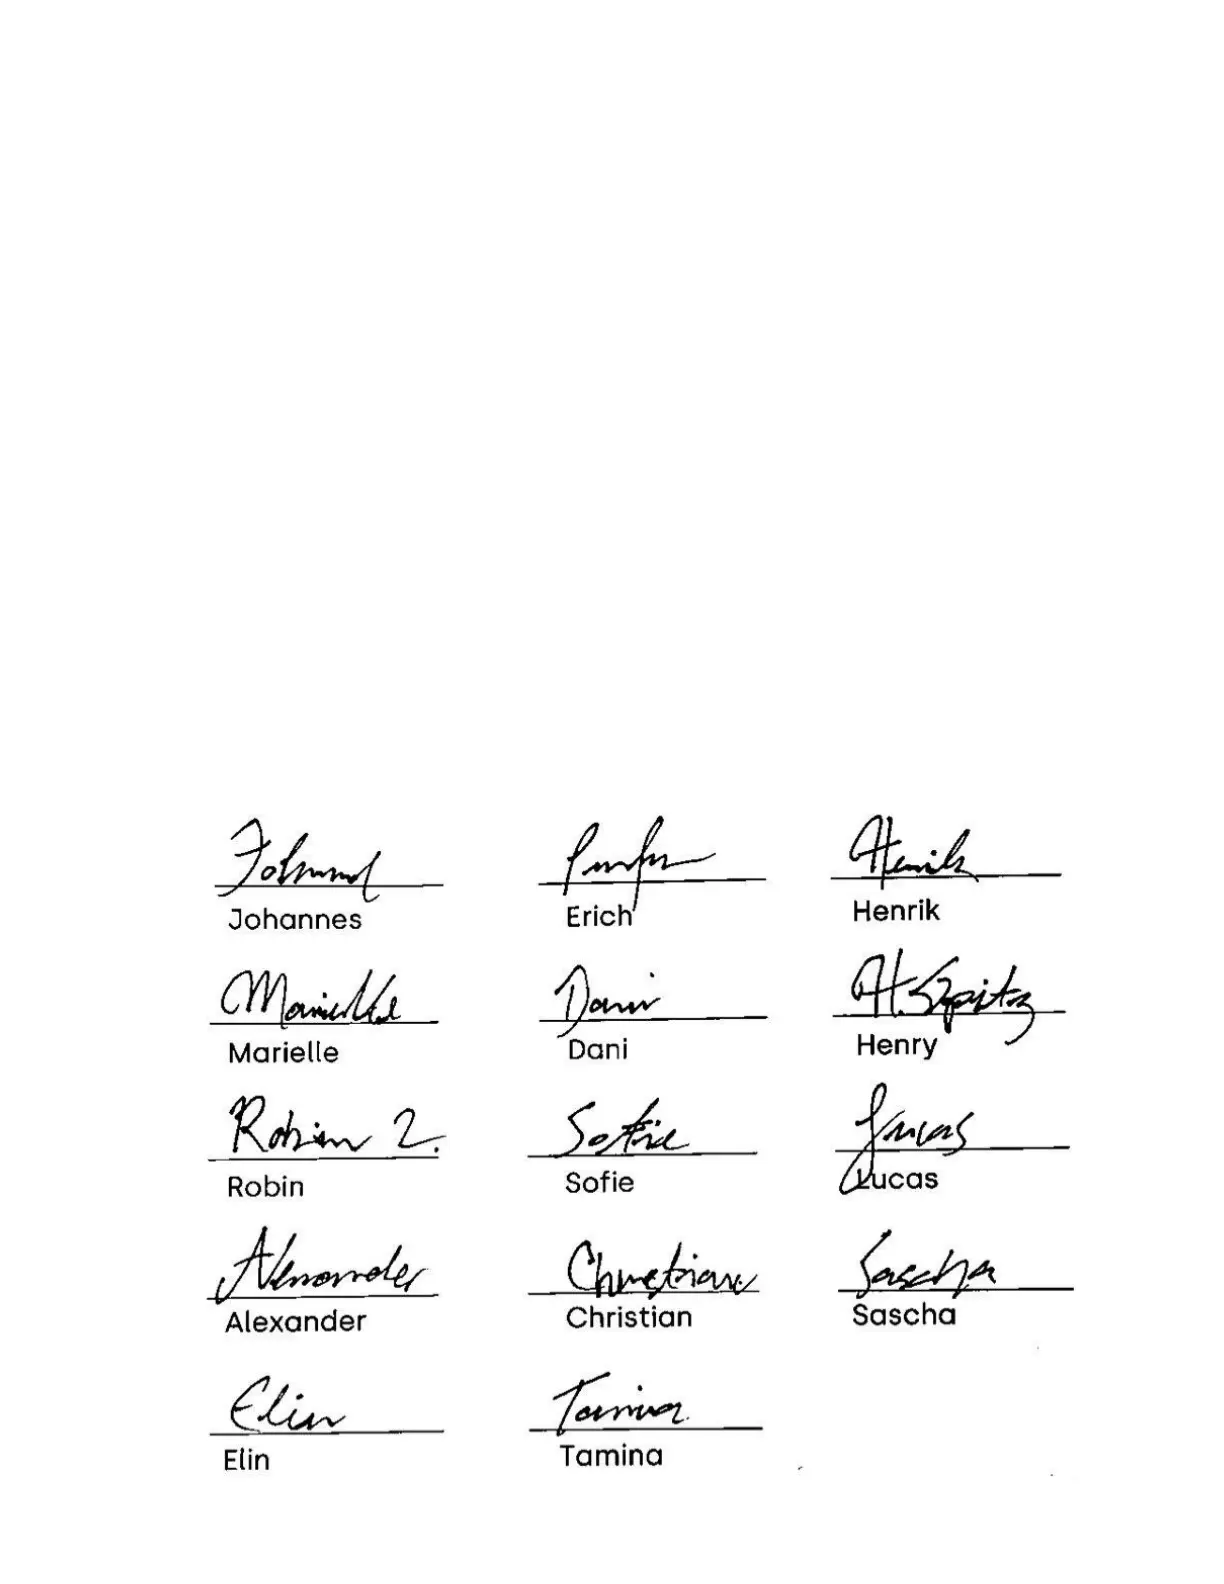 Johannes Erich Henrik
Marielle Dani H. Spitz
Marielle Dani Henry
Robin Z. Sofie Lucas
Robin Sofie Lucas
Alexander Christian Sascha
Alexander Christian Sascha
Elin Tamina
Elin Tamina